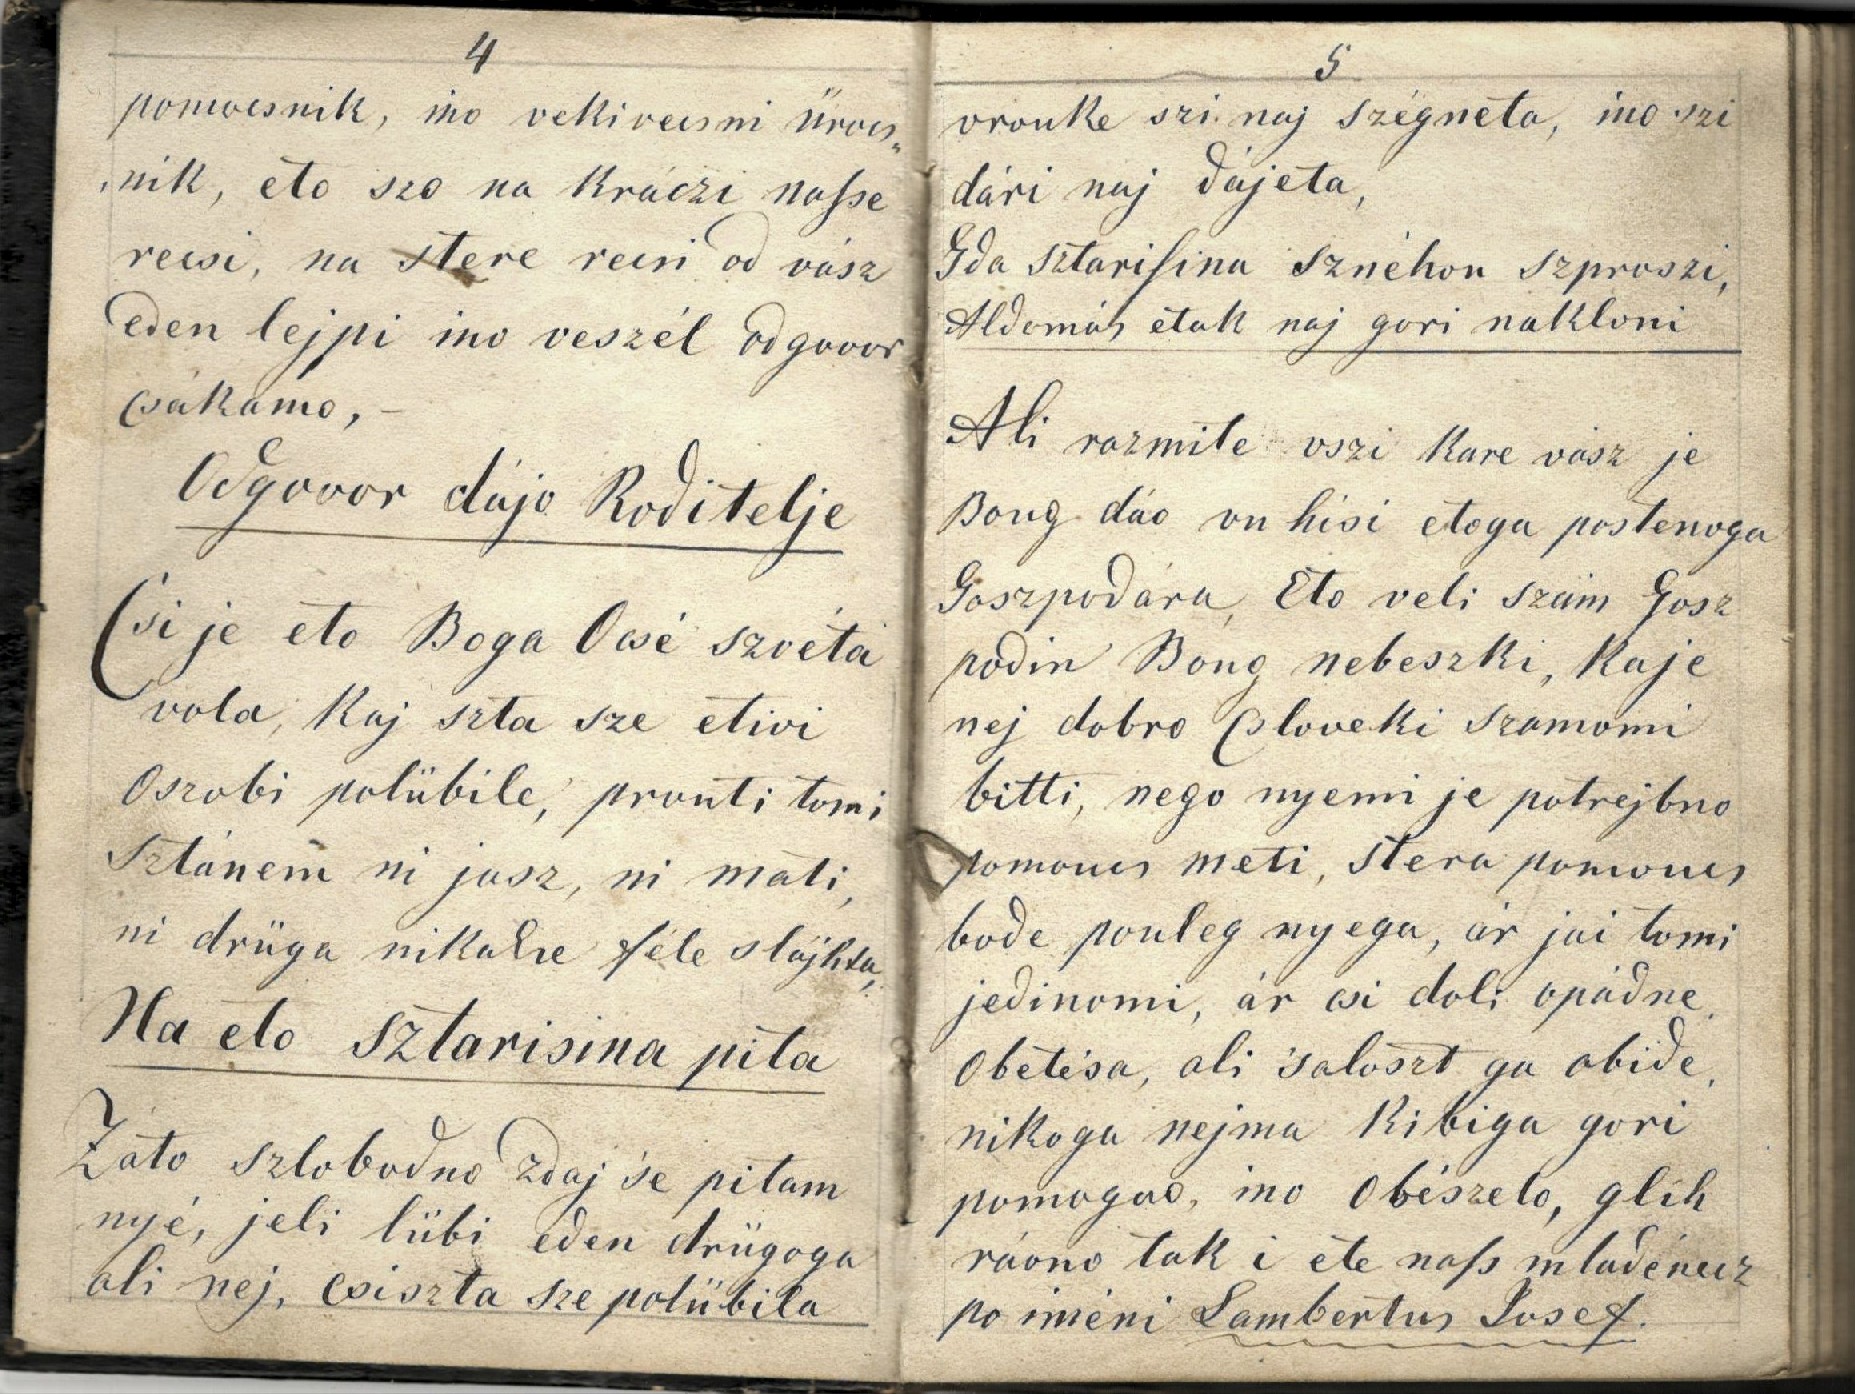 4
pomocsnik, ino vekivecsni Ürocs„
„nik, eto szo na Kráczi naſse
recsi, na stere recsi od vász
eden lejpi ino veszél odgovor
csákamo, –
Odgovor dájo Roditelje
Csi je eto Boga Ocsé szvéta
vola, Kaj szta sze etivi
Oszobi polübile, prouti tomi
Sztánem ni jasz, ni mati,
ni drüga nikakse féle slájhta,
Na eto Sztarisina pita
Záto szlobodno zdaj se pitam
nyé, jeli lübi eden drügoga
ali nej, csiszta sze polübila
5
vrouke szi naj szégneta, ino szi
dári naj dájeta,
Gda Sztariſina sznéhou szproszi,
Aldomás etak naj gori nakloni
Ali razmite vszi Kare vász je
Boug dáo vu hisi etoga postenoga
Goszpodára, Eto veli szám Gosz
podin Boug nebeszki, Kaje
nej dobro Csloveki szamomi
bitti, nego nyemi je potrejbno
pomoucs meti, stera pomoucs
bode pouleg nyega, ár jai tomi
jedinomi, ár csi doli opádne
Obetésa, ali saloszt ga obide,
nikoga nejma Kibiga gori
pomogao, ino Obészelo, glih
ráono tak i ete naſs mladénecz
po iméni Lambertus Josef.